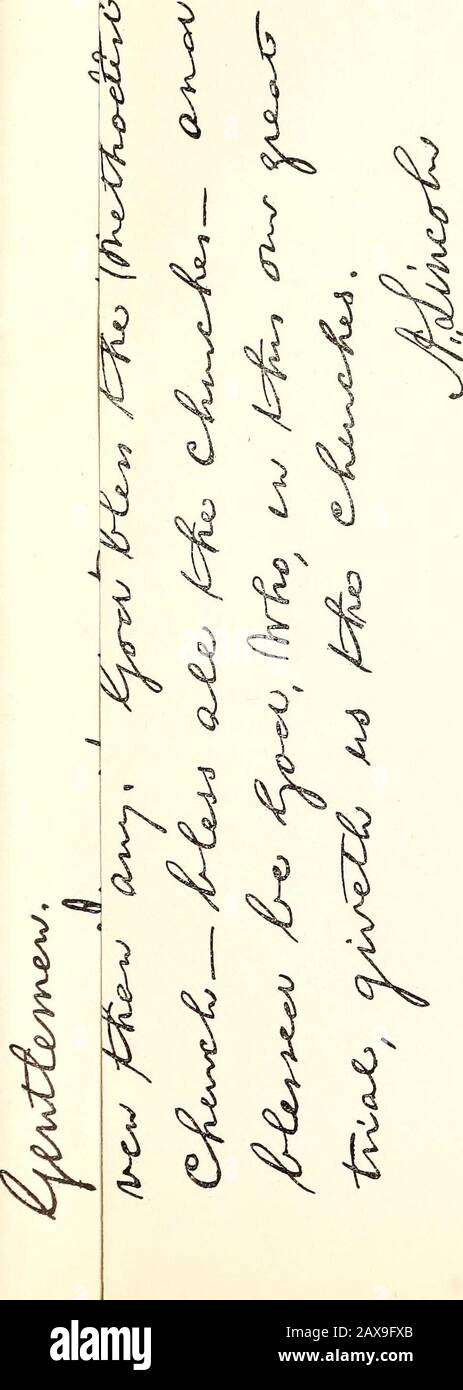 Gentlemen.
ven than any. God bless the Methodist
Church — bless all the churches — and
blessed be God, Who, in this our great
trial, giveth us the churches.
A. Lincoln
alamy
Image ID: 2AX9FXB
www.alamy.com